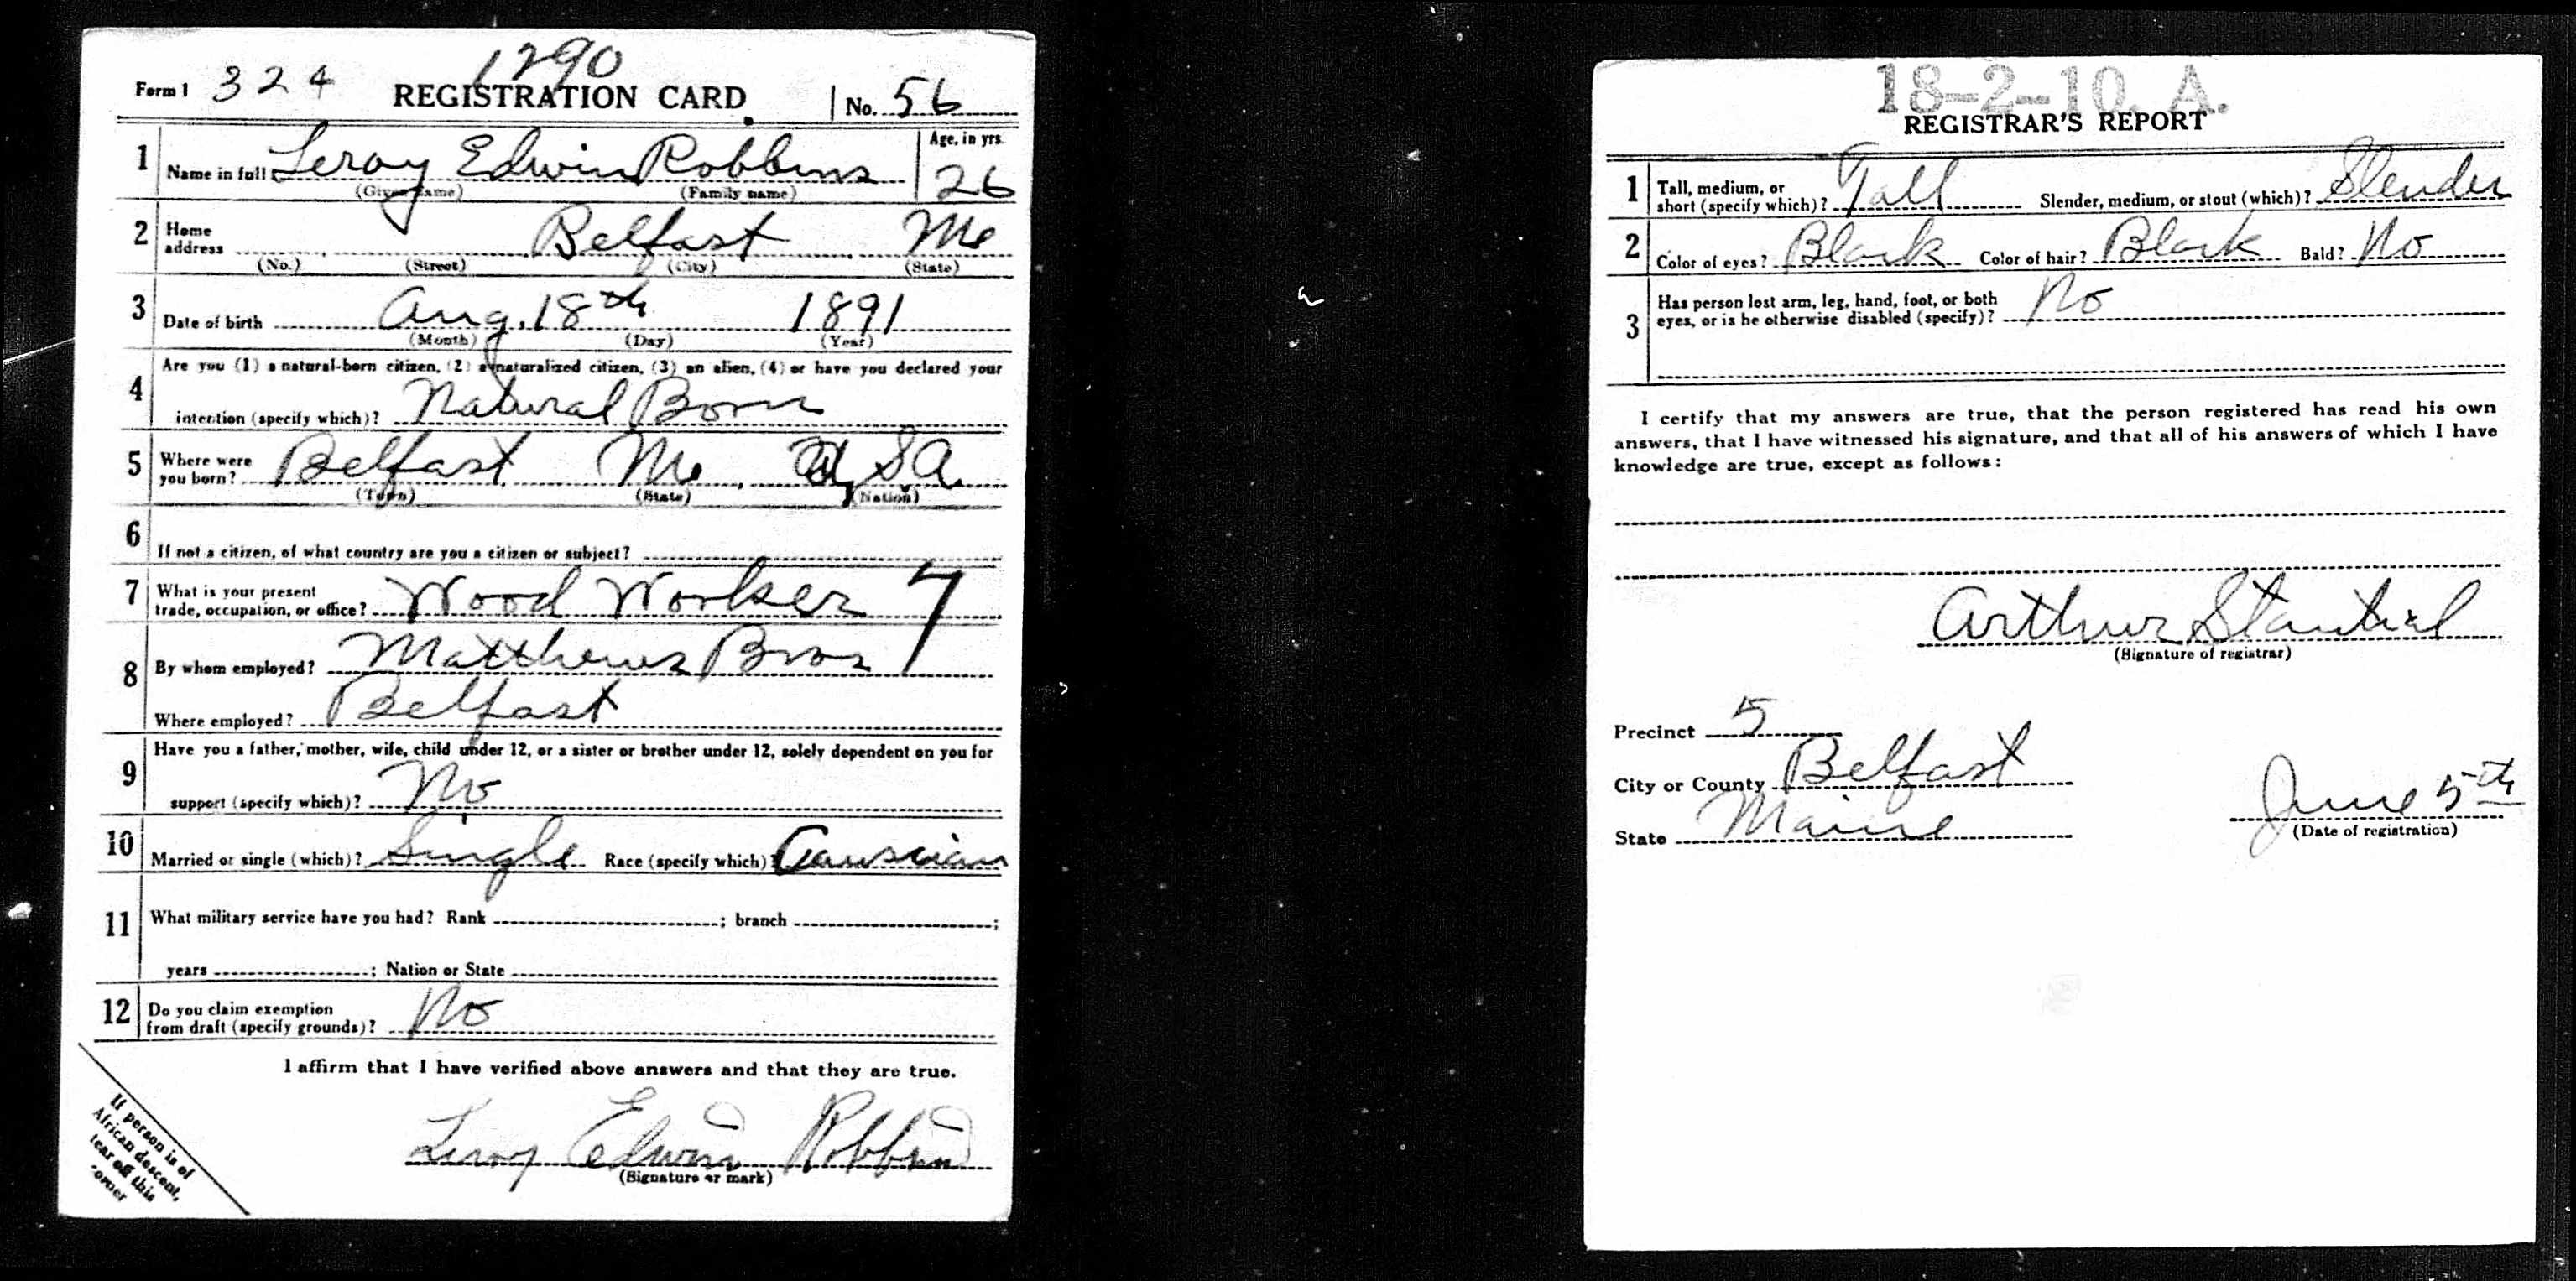 1290
Form 1 324 REGISTRATION CARD No. 56
1 Name in full Leroy Edwin Robbins Age, in yrs. 26
(Given name) (Family name)
2 Home address Belfast Me
(No.) (Street) (City) (State)
3 Date of birth Aug. 18th 1891
(Month) (Day) (Year)
4 Are you (1) a natural-born citizen, (2) a naturalized citizen, (3) an alien, (4) or have you declared your
intention (specify which)? Natural Born
5 Where were you born? Belfast Me. U.S.A.
(Town) (State) (Nation)
6 If not a citizen, of what country are you a citizen or subject?
7 What is your present trade, occupation, or office? Wood Worker 7
8 By whom employed? Matthews Bros
Where employed? Belfast
9 Have you a father, mother, wife, child under 12, or a sister or brother under 12, solely dependent on you for
support (specify which)? No
10 Married or single (which)? Single Race (specify which)? Causcian
11 What military service have you had? Rank ; branch ;
years ; Nation or State
12 Do you claim exemption from draft (specify grounds)? No
I affirm that I have verified above answers and that they are true.
Leroy Edwin Robbins
(Signature or mark)
If person is of
African descent,
tear off this
corner
18-2-10. A.
REGISTRAR'S REPORT
1 Tall, medium, or short (specify which)? Tall Slender, medium, or stout (which)? Slender
2 Color of eyes? Black Color of hair? Black Bald? No
3 Has person lost arm, leg, hand, foot, or both
eyes, or is he otherwise disabled (specify)? No
I certify that my answers are true, that the person registered has read his own
answers, that I have witnessed his signature, and that all of his answers of which I have
knowledge are true, except as follows:
Arthur Stantial
(Signature of registrar)
Precinct 5
City or County Belfast
State Maine
June 5th
(Date of registration)